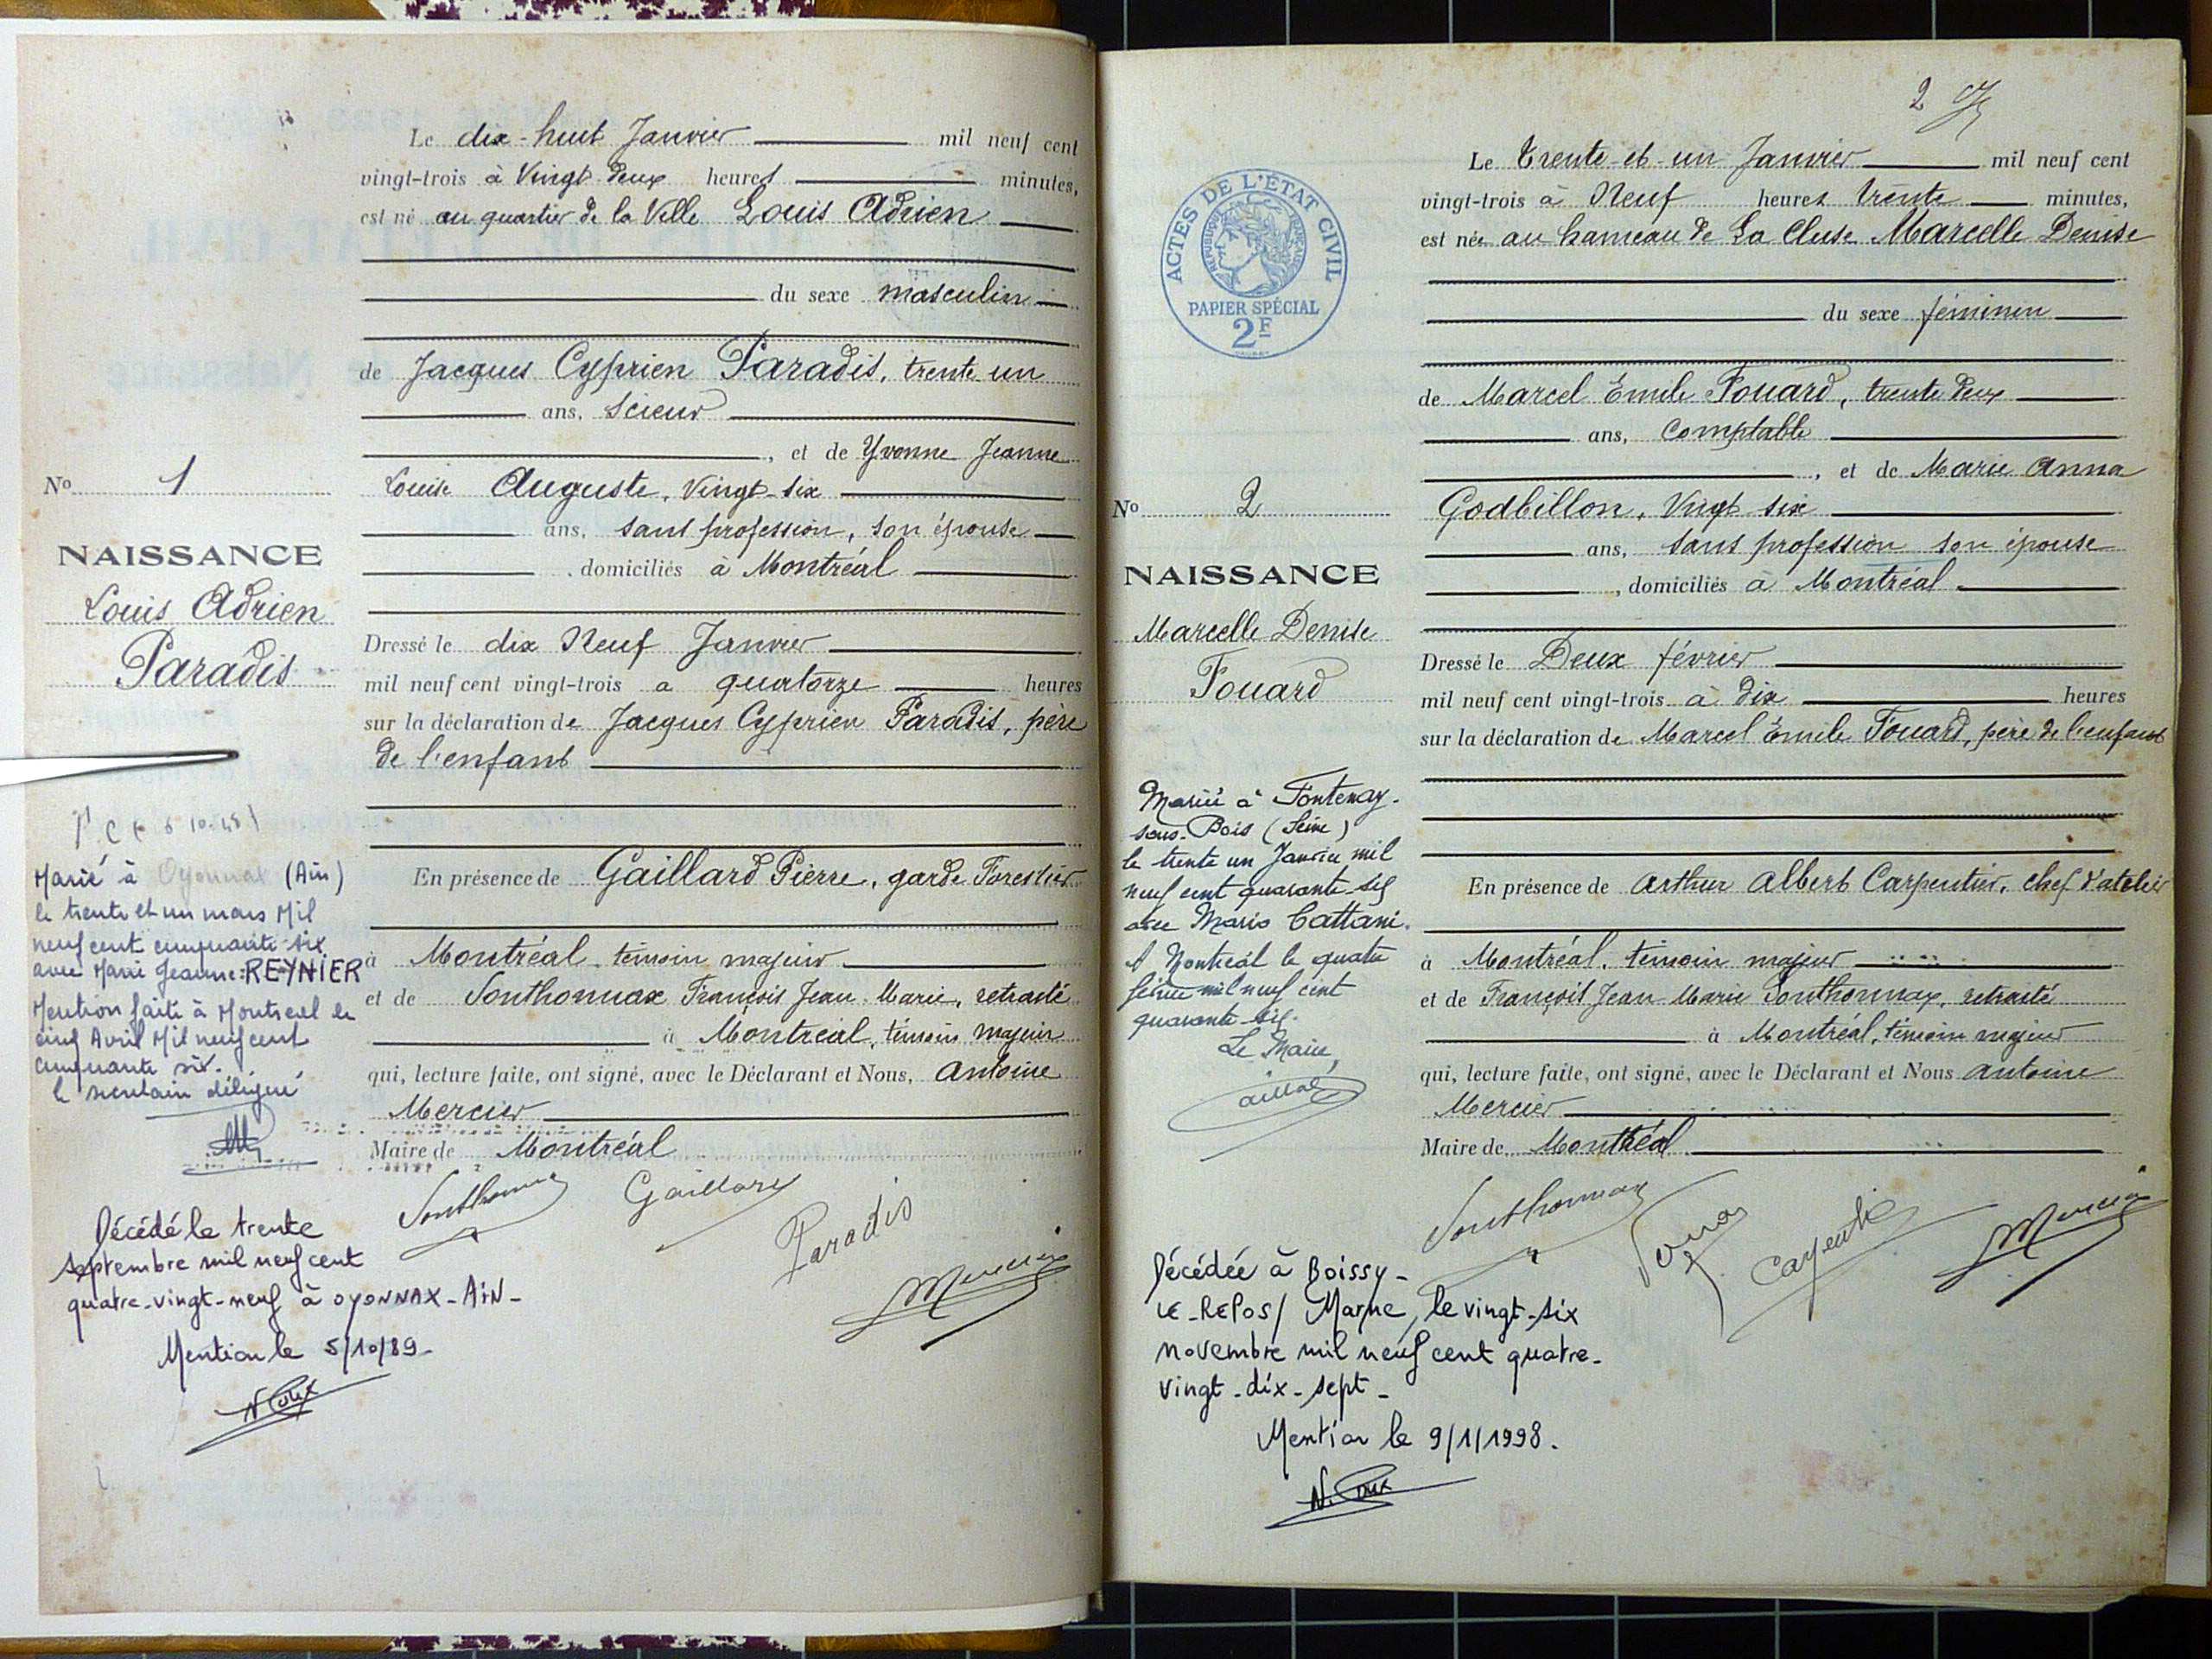 Le dix-huit Janvier mil neuf cent
vingt-trois à Vingt deux heures minutes,
est né au quartier de la Ville Louis Adrien
du sexe masculin
de Jacques Cyprien Paradis, trente un
ans, Scieur
, et de Yvonne Jeanne
Louise Auguste, Vingt-six
ans, sans profession, son épouse
domiciliés à Montréal
Dressé le dix Neuf Janvier
mil neuf cent vingt-trois a quatorze heures
sur la déclaration de Jacques Cyprien Paradis, père
de l'enfant
En présence de Gaillard Pierre, garde Forestier
à Montréal, témoin majeur
et de Sonthonnax François Jean Marie, retraité
à Montréal, témoin majeur
qui, lecture faite, ont signé, avec le Déclarant et Nous, Antoine
Mercier
Maire de Montréal
Sonthonnax Gaillard
Paradis
Mercier
No 1
NAISSANCE
Louis Adrien
Paradis
Marié à Oyonnax (Ain)
le trente et un mars Mil
neuf cent cinquante-six
avec Marie Jeanne REYNIER
Mention faite à Montreal le
cinq Avril Mil neuf cent
cinquante six.
le secrétaire délégué
Décédé le trente
septembre mil neuf cent
quatre-vingt-neuf à OYONNAX-AIN-
Mention le 5/10/89-
2
Le trente-et-un Janvier mil neuf cent
vingt-trois à Neuf heures trente minutes,
est née au hameau de La Cluse Marcelle Denise
du sexe féminin
de Marcel Émile Fouard, trente deux
ans, Comptable
, et de Marie Anna
Godbillon, Vingt six
ans, sans profession son épouse
, domiciliés à Montréal
Dressé le Deux février
mil neuf cent vingt-trois à dix heures
sur la déclaration de Marcel Émile Fouard, père de l'enfant
En présence de Arthur Albert Carpentier, chef d'atelier
à Montréal, témoin majeur
et de François Jean Marie Sonthonnax, retraité
à Montréal, témoin majeur
qui, lecture faite, ont signé, avec le Déclarant et Nous Antoine
Mercier
Maire de Montréal
Sonthonnax Carpentier Mercier
ACTES DE L'ÉTAT CIVIL
RÉPUBLIQUE FRANÇAISE
PAPIER SPÉCIAL
2F
No 2
NAISSANCE
Marcelle Denise
Fouard
Mariée à Fontenay-
sous-Bois (Seine)
le trente un Janvier mil
neuf cent quarante-six
avec Mario Cattani.
A Montréal le quatre
février mil neuf cent
quarante-six.
Le Maire,
Décédée à Boissy-
LE-REPOS/ Marne, le vingt-six
novembre mil neuf cent quatre-
vingt-dix-sept-
Mention le 9/1/1998.